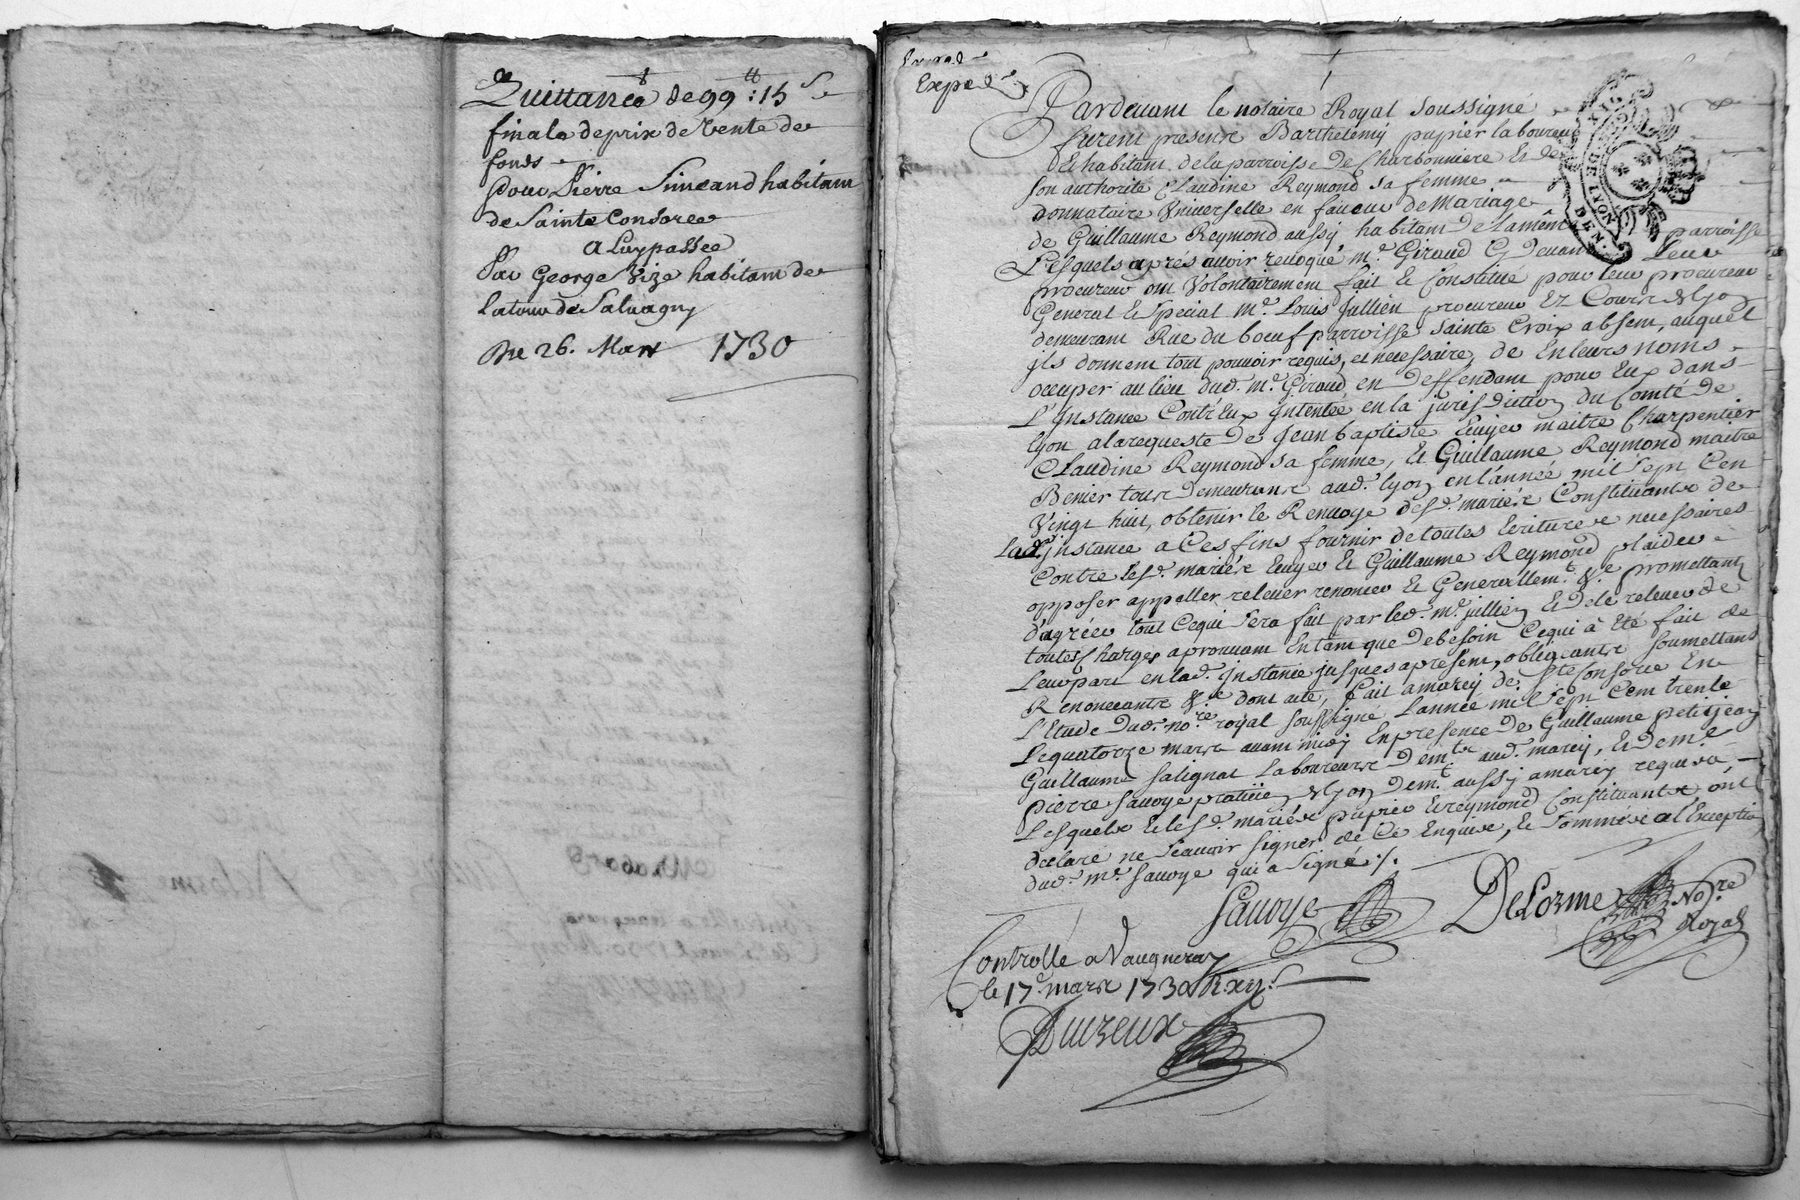 Quittance de 99 ₶: 15 s
finale de prix de vente de
fonds
pour Pierre Simeand habitant
de Sainte Consorce
a Luy passée
Par George Vize habitant de
Latour de Salvagny
Du 26. Mars 1730
Exped.
Expe.d.
Pardevant le notaire Royal soussigné
furent presents Barthelemy pupier laboureur
et habitant de la parroisse de Charbonniere et de
son authorité Claudine Reymond sa femme
donnataire Universelle en faveur de mariage
de Guillaume Reymond aussy habitant de la même parroisse
Lesquels après avoir revoqué m.e Giroud Cy devant Leur
procureur ont Volontairement fait et Constitué pour leur procureur
General et Special m.e Louis Jullien procureur Ez Cours de lyon
demeurant Rue du boeuf parroisse sainte Croix absent, auquel
jls donnent tout pouvoir requis, et necessaire, de En leurs noms
occuper au lieu dud. m.e Giroud en deffendant pour Eux dans
L'Instance Contr'Eux Intentée en la jurisdiction du Comté de
lyon a la requeste de Jean baptiste Luyer maitre Charpentier
Claudine Reymond sa femme, et Guillaume Reymond maitre
Benier tous demeurants aud. lyon en l'année mil sept Cen
Vingt huit, obtenir le Renvoye desd. mariés Constituants de
Lad. instance a Ces fins fournir de toutes Ecritures necessaires
Contre lesd. mariés Luyer et Guillaume Reymond plaider
opposer appeller relever renoncer et Generallem.t &.e promettant
d'agréer tout Cequi sera fait par led. m.e jullien et de le relever de
toutes Charges aprouvant En tant que de besoin Cequi à été fait de
Leur part en lad. jnstance jusques a present, obligeants soumettans
Renonceants &.e dont acte, fait a marcy de S.te Consorce En
L'Etude dud. no.re royal soussigné, L'année mil sept Cent trente
Le quatorze mars avant midy En presence de Guillaume petitjean
Guillaume salignat Laboureurs dem.ts aud. marcy, et de m.e
pierre sauoye praticien de lyon dem.t aussy a marcy requis
Lesquels et lesd. mariés pupier et reymond Constituants ont
declaré ne sçavoir signer de Ce Enquis, et sommés a l'Exception
dud. m.e sauoye qui a signé ./.
Sauoye
DeLorme No.re
Royal
Controllé a Vaugneray
le 17.e mars 1730 R xij s
Dureux